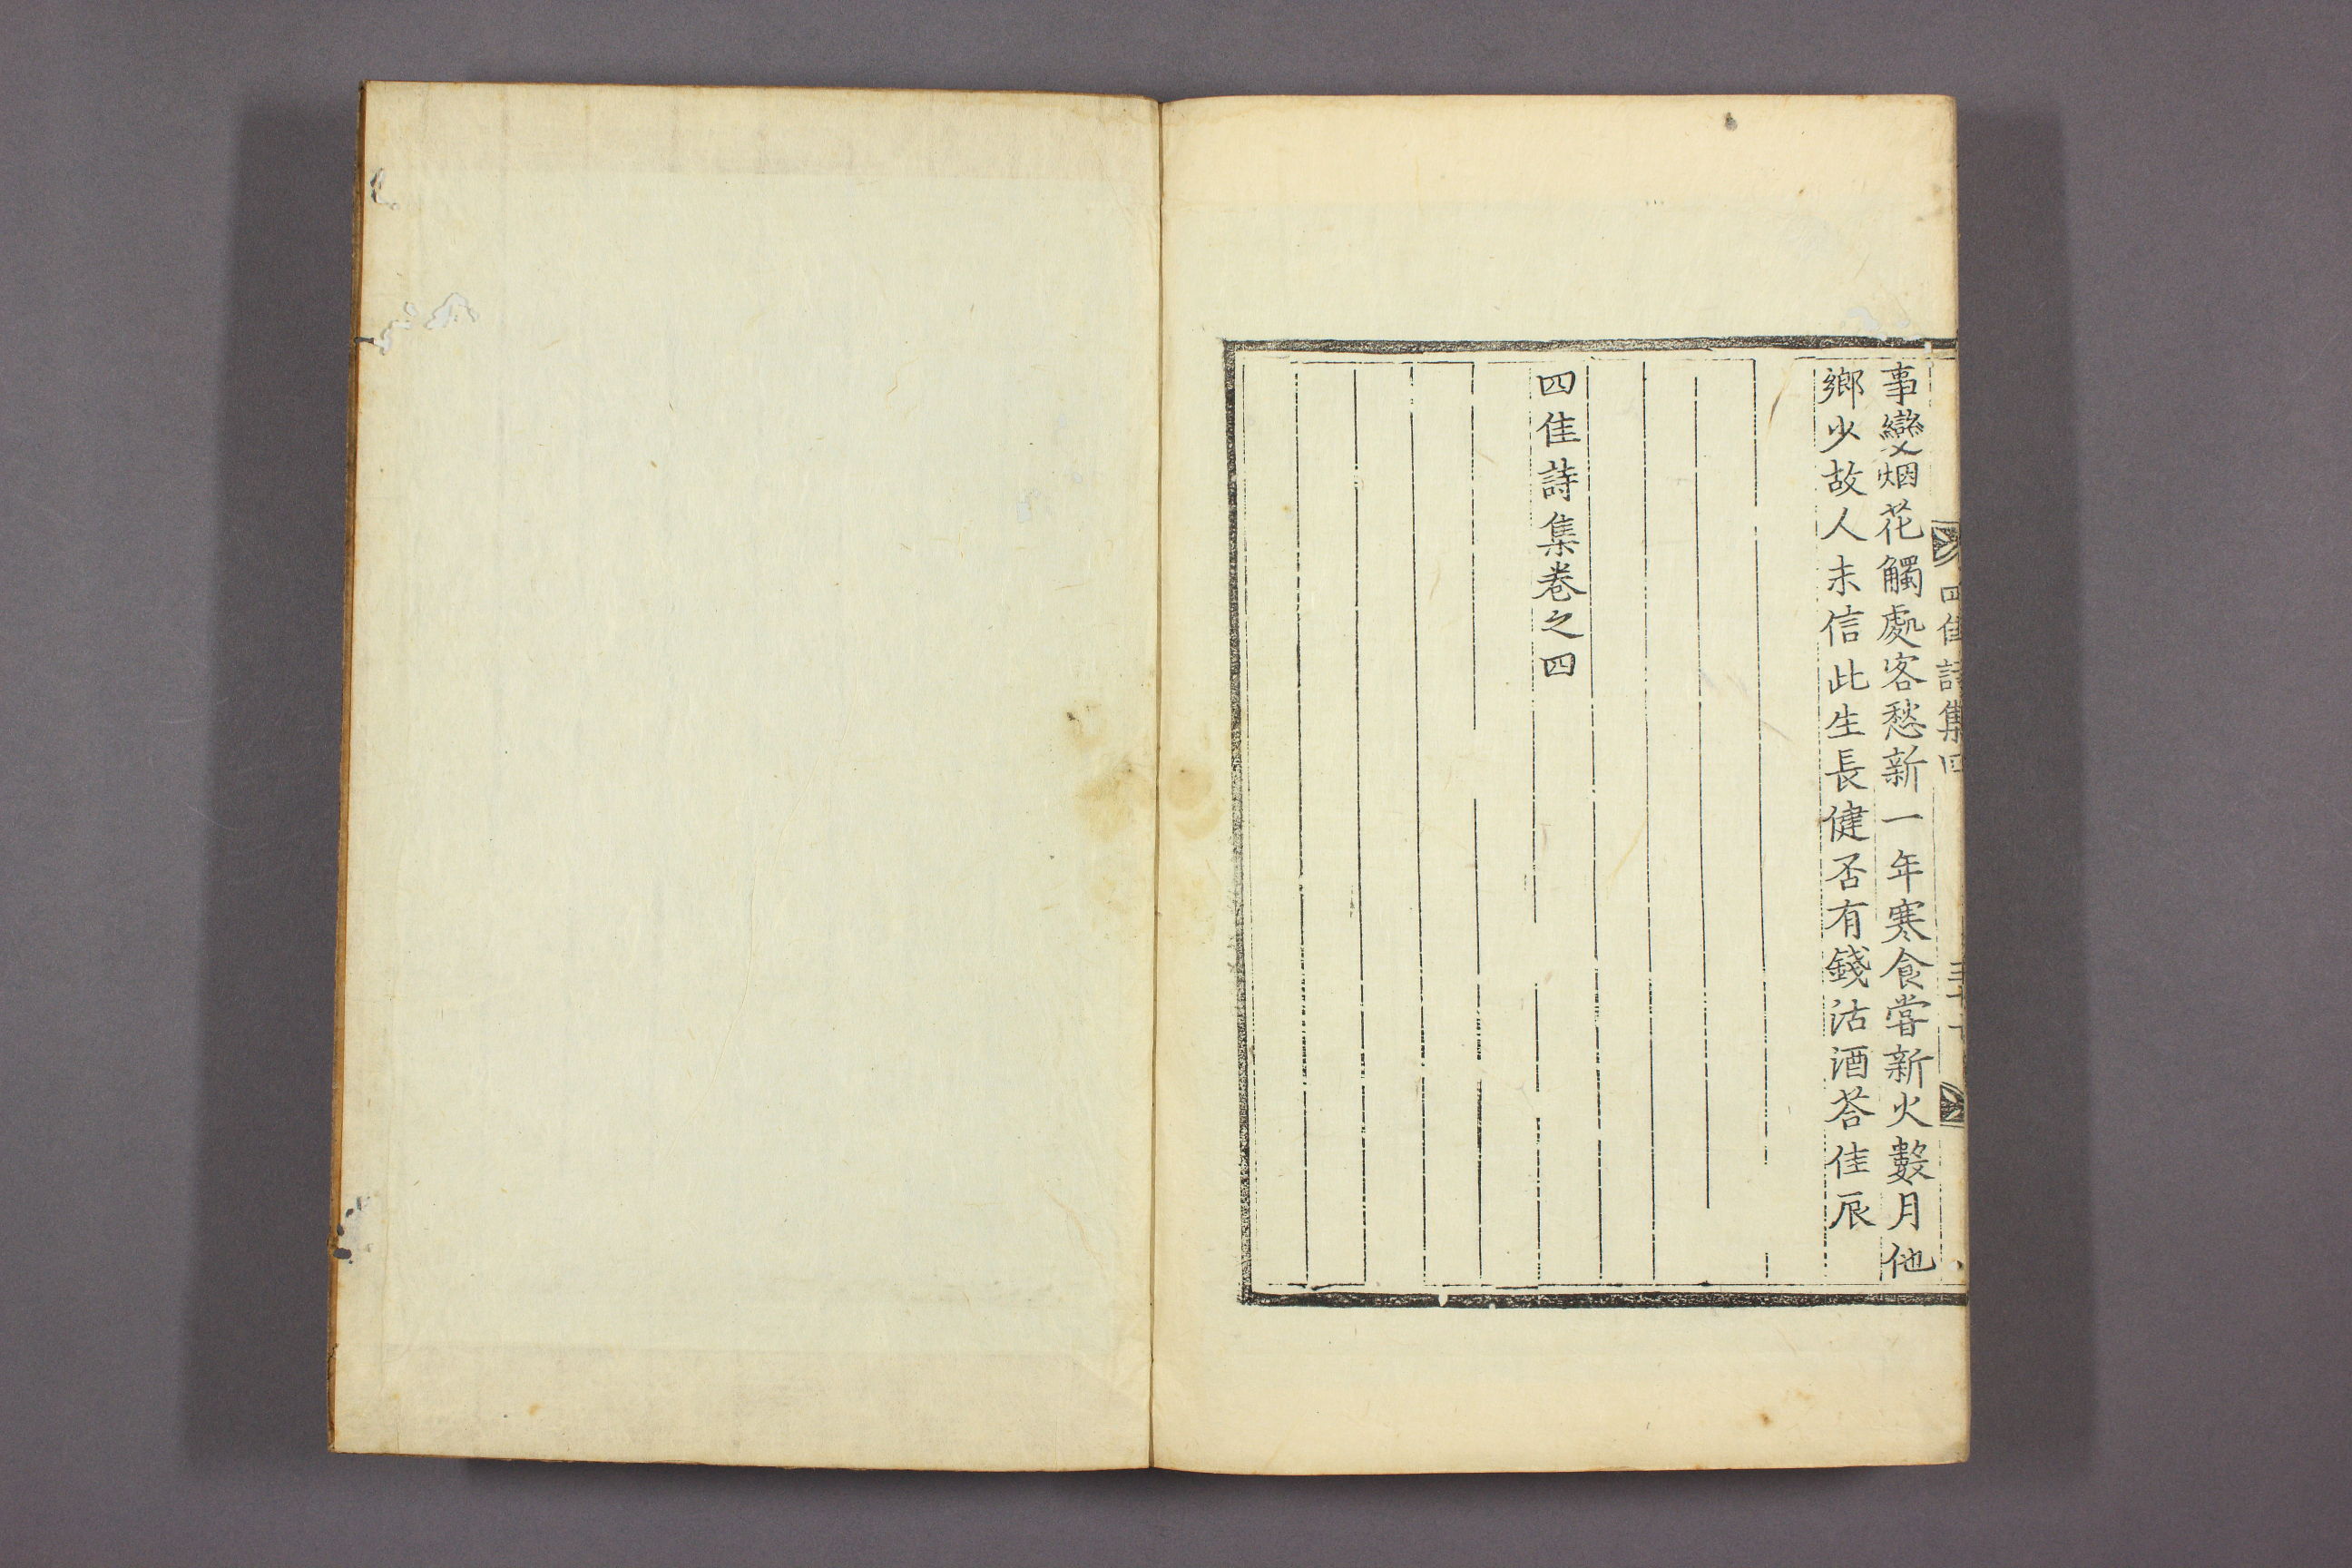 四佳詩集四
事變烟花觸處客愁新一年寒食嘗新火數月他
鄉少故人未信此生長健否有錢沽酒荅佳辰
四佳詩集卷之四